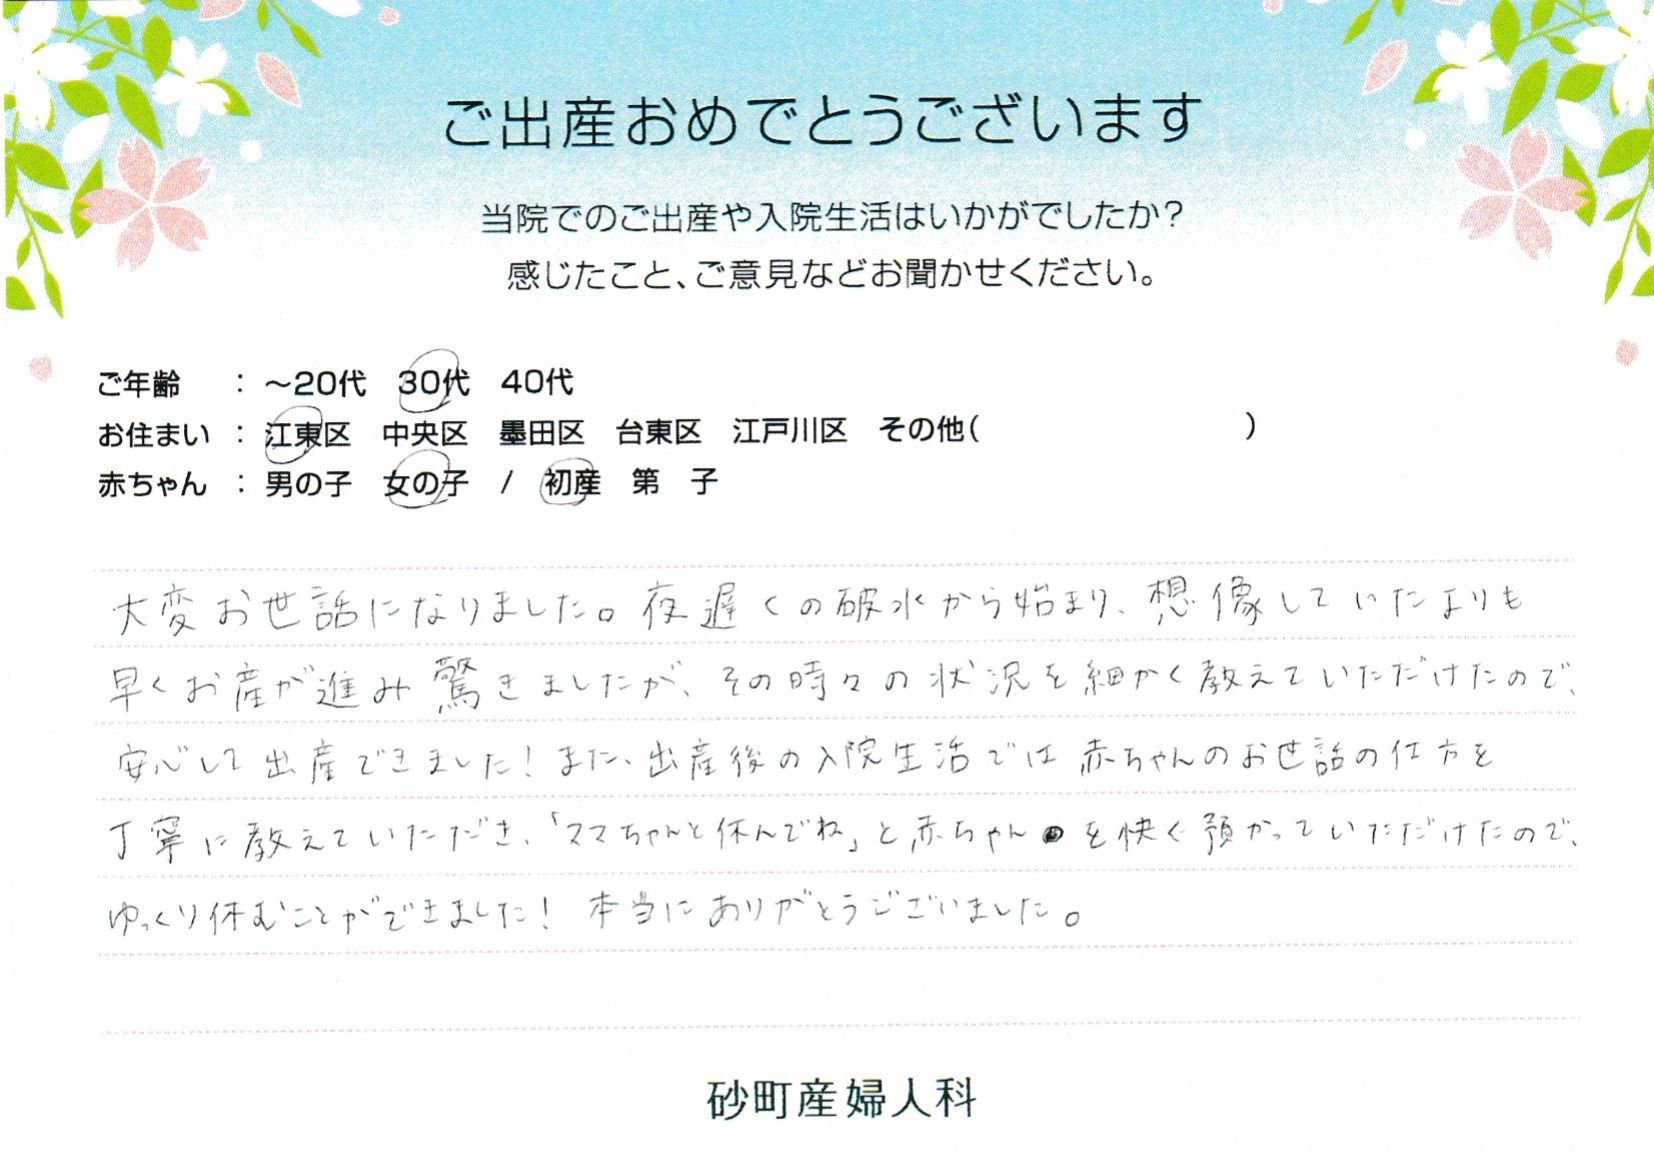 ご出産おめでとうございます
当院でのご出産や入院生活はいかがでしたか?
感じたこと、ご意見などお聞かせください。
ご年齢 : ～20代 30代 40代
お住まい : 江東区 中央区 墨田区 台東区 江戸川区 その他( )
赤ちゃん : 男の子 女の子 / 初産 第 子
大変お世話になりました。夜遅くの破水から始まり、想像していたよりも
早くお産が進み驚きましたが、その時々の状況を細かく教えていただけたので、
安心して出産できました!また、出産後の入院生活では赤ちゃんのお世話の仕方を
丁寧に教えていただき、「ママちゃんと休んでね」と赤ちゃんを快く預かっていただけたので、
ゆっくり休むことができました! 本当にありがとうございました。
砂町産婦人科